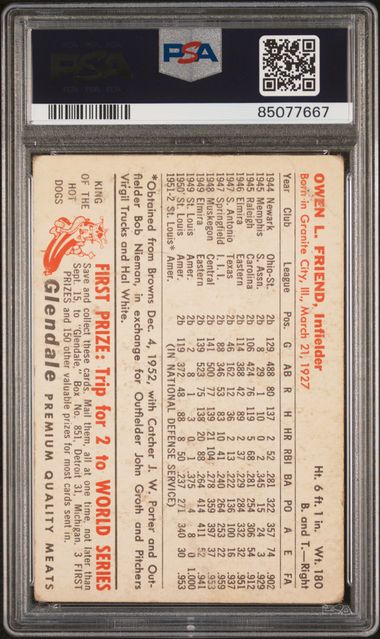 PSA
PSA
85077667
OWEN L. FRIEND, Infielder
Born in Granite City, Ill., March 21, 1927
Ht. 6 ft. 1 in. Wt. 180
B. and T.—Right
Year Club League Pos. G AB R H HR RBI BA PO A E FA
1944 Newark Ohio-St. 2b 129 488 80 137 2 52 .281 322 357 74 .902
1945 Memphis S. Assn. 2b 8 29 1 10 0 2 .345 15 24 3 .929
1945 Raleigh Carolina 2b 106 424 76 119 68 .281 254 306 54 .912
1946 Elmira Eastern 2b 114 388 42 89 3 39 .229 284 332 32 .951
1947 S. Antonio Texas 2b 46 162 12 36 2 13 .222 136 100 16
1947 Springfield I. I. I. 2b 88 346 53 .240 264 253 22 .959
1948 Muskegon Central 2b 500 77 359 397 37 .953
1949 Elmira Eastern 2b 139 523 75 138 20 88 .264 414 411 52 .941
1949 St. Louis Amer. 2b 2 8 1 3 0 1 .375 4 8 0 1.000
1950 St. Louis Amer. 2b 119 372 48 88 8 50 .237 271 341 30 .953
1951-2 St. Louis* Amer. (IN NATIONAL DEFENSE SERVICE)
*Obtained from Browns Dec. 4, 1952, with Catcher J. W. Porter and Out-
fielder Bob Nieman, in exchange for Outfielder John Groth and Pitchers
Virgil Trucks and Hal White.
KING
OF THE
HOT
DOGS
FIRST PRIZE: Trip for 2 to WORLD SERIES
Save and collect these cards. Mail them, all at one time, not later than
Sept. 15, to "Glendale," Box No. 851, Detroit 31, Michigan. 3 FIRST
PRIZES and 150 other valuable prizes for most cards sent in.
Glendale PREMIUM QUALITY MEATS